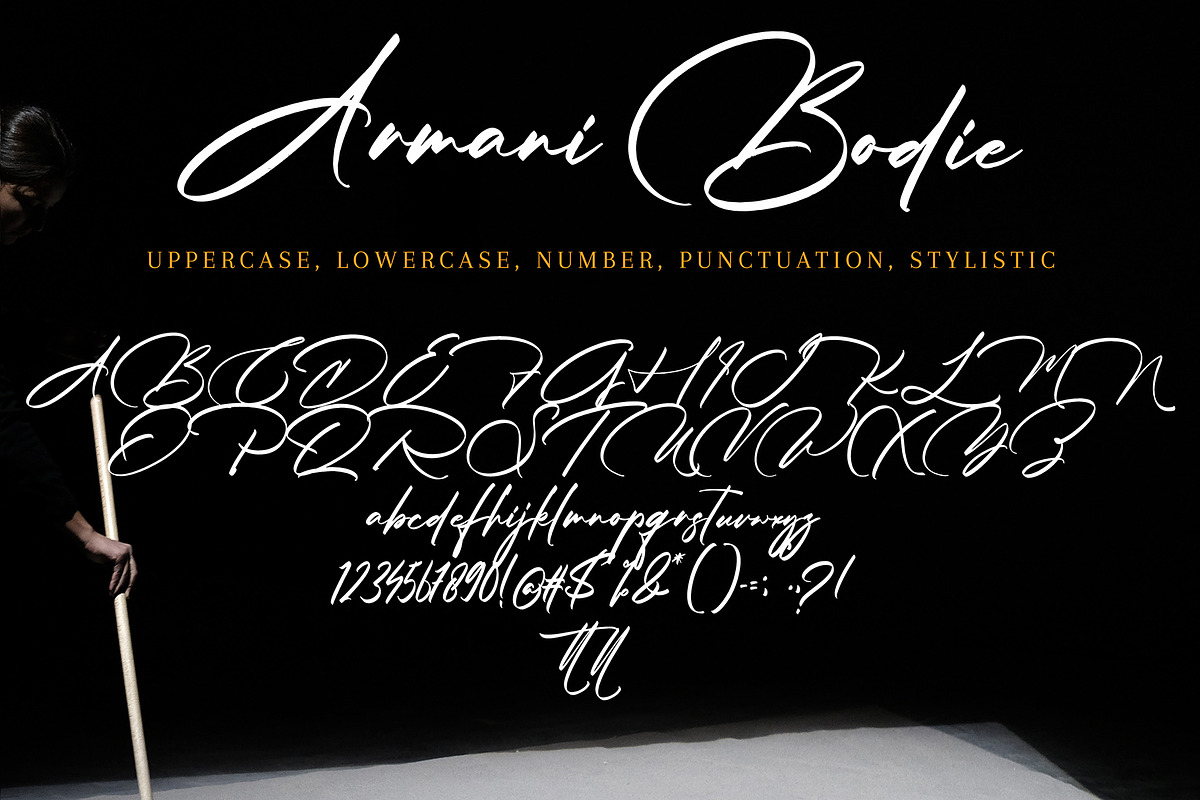 Armani Bodie
UPPERCASE, LOWERCASE, NUMBER, PUNCTUATION, STYLISTIC
ABCDEFGHIJKLMN
OPQRSTUVWXYZ
abcdefhijklmnopqrstuvwxyz
1234567890!@#$^%&*()-=;:.,?/